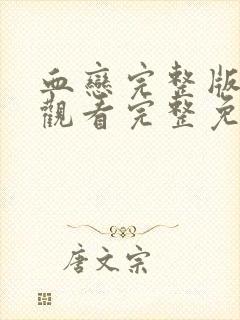 血戀完整版
觀看完整免
唐文宗